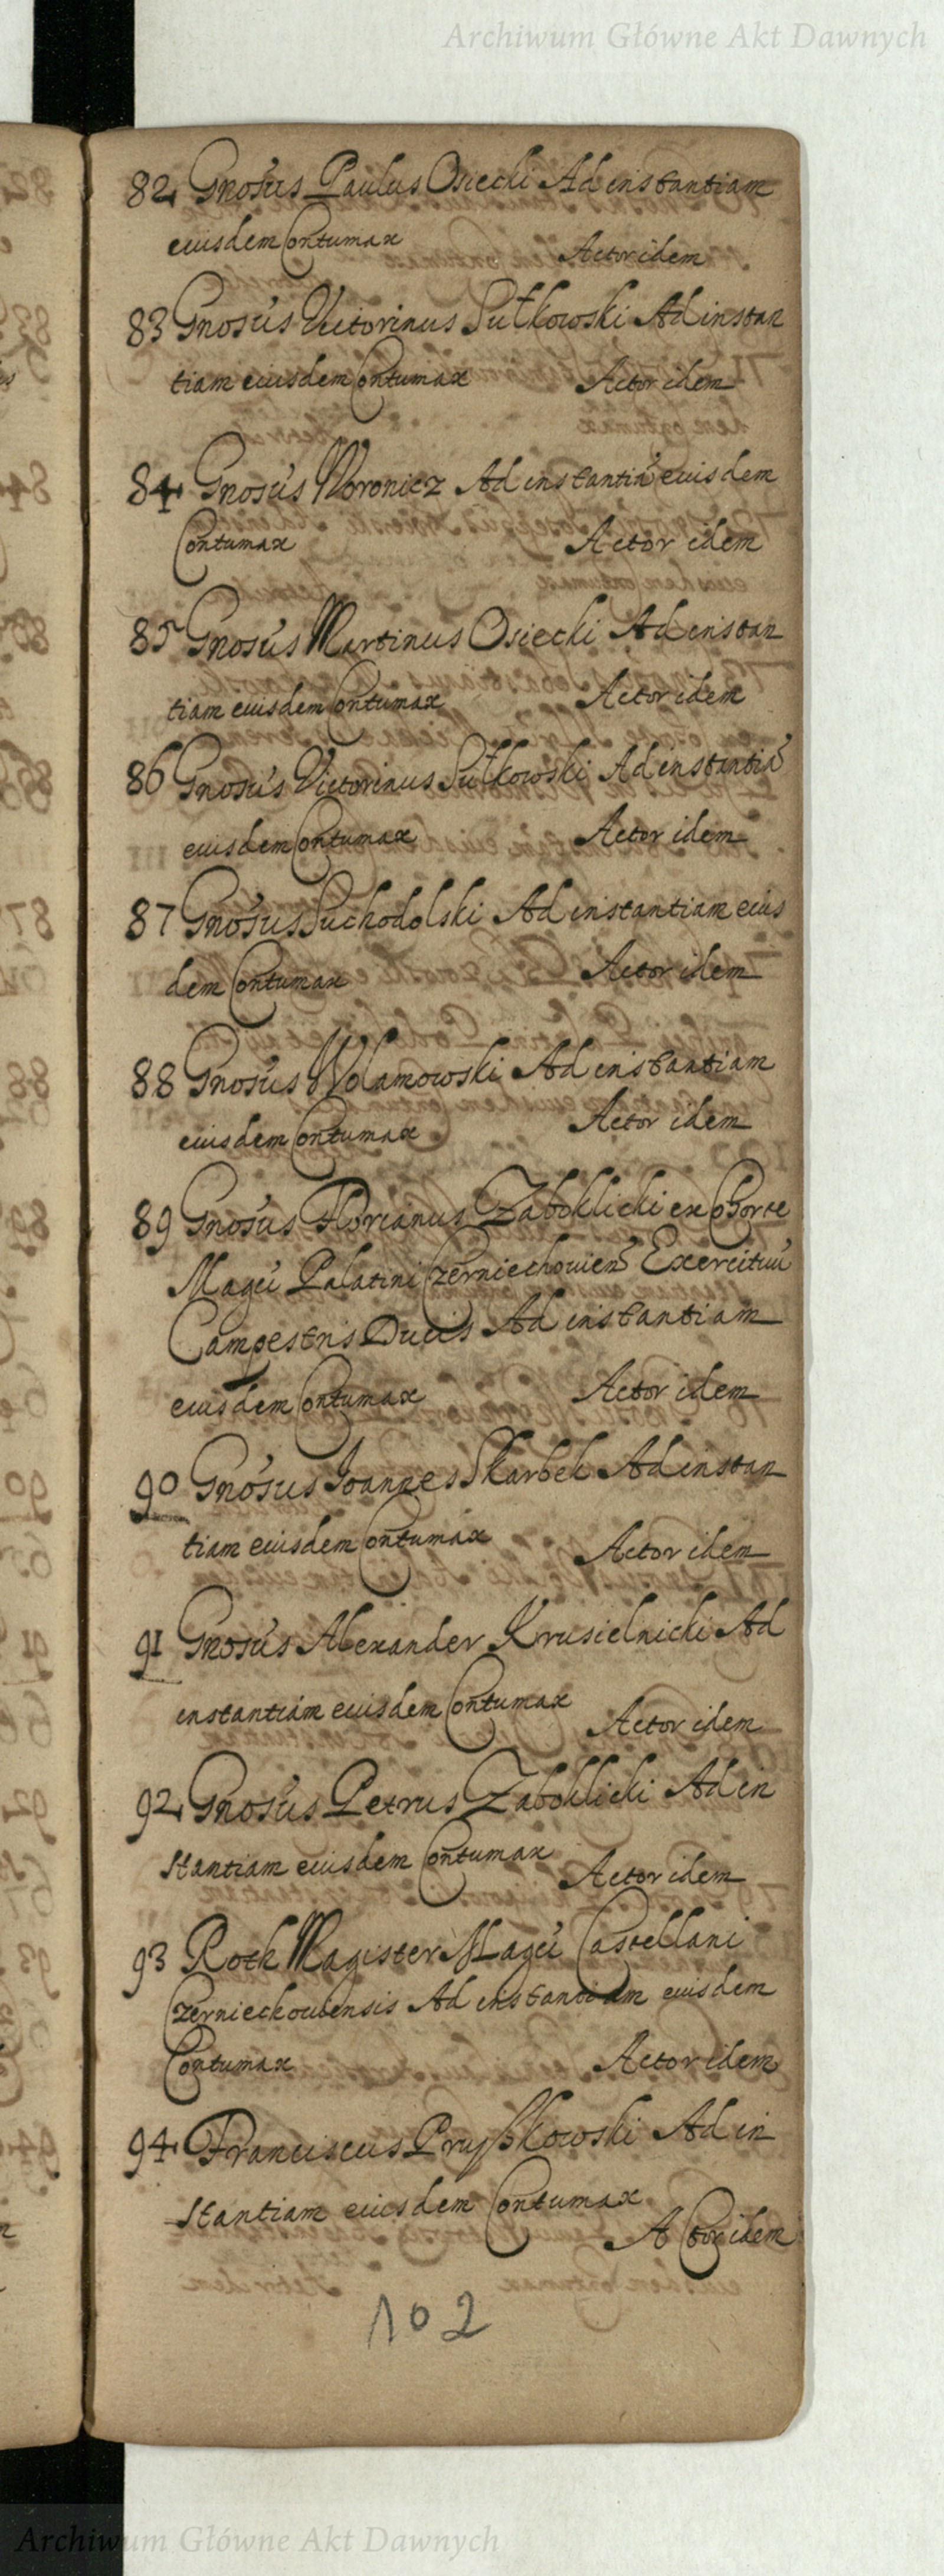 Archiwum Główne Akt Dawnych
82 Gnosus Paulus Osiecki Ad instantiam
eiusdem Contumax Actor idem
83 Gnosus Victorinus Sułkowski Ad instan
tiam eiusdem Contumax Actor idem
84 Gnosus Woronicz Ad instantiā eiusdem
Contumax Actor idem
85 Gnosus Martinus Osiecki Ad instan
tiam eiusdem Contumax Actor idem
86 Gnosus Victorinus Sułkowski Ad instantiā
eiusdem Contumax Actor idem
87 Gnosus Suchodolski Ad instantiam eius
dem Contumax Actor idem
88 Gnosus Wolamowski Ad instantiam
eiusdem Contumax Actor idem
89 Gnosus Florianus Zaboklicki ex Chorte
Magci Palatini Czerniechovień Exercituū
Campestris Ducis Ad instantiam
eiusdem Contumax Actor idem
90 Gnosus Joannes Skarbek Ad instan
tiam eiusdem Contumax Actor idem
91 Gnosus Alexander Krusielnicki Ad
instantiam eiusdem Contumax Actor idem
92 Gnosus Petrus Zaboklicki Ad in
stantiam eiusdem Contumax Actor idem
93 Roth Magister Magci Castellani
Czerniechoviensis Ad instantiam eiusdem
Contumax Actor idem
94 Franciscus Pruszkowski Ad in
stantiam eiusdem Contumax
Actor idem
102
Archiwum Główne Akt Dawnych